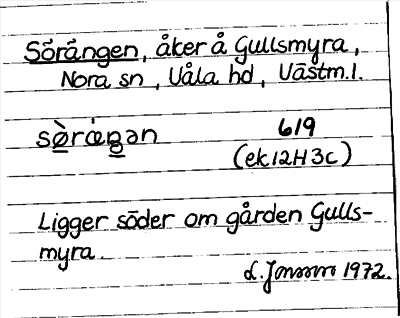 Sörängen, åker å Gullsmyra,
Nora sn, Våla hd, Västm.l.
sö̀ræ̀ŋən 619
(ek12H3c)
Ligger söder om gården Gulls-
myra.
L. Jonsson 1972.